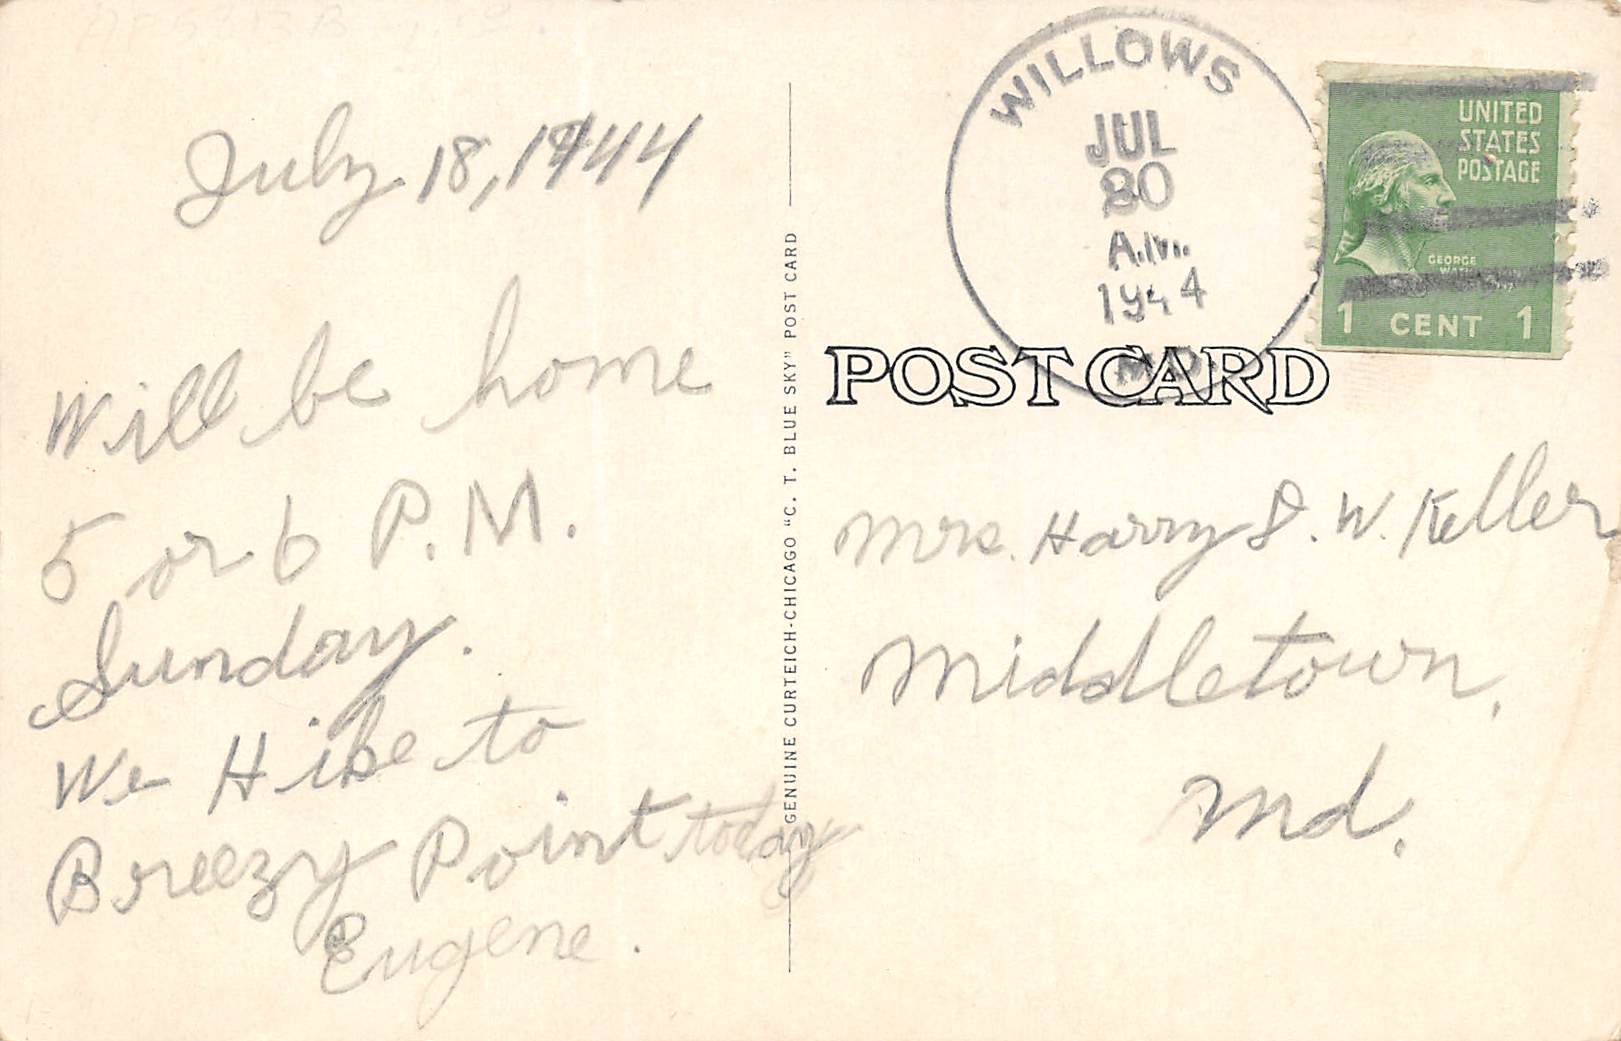 July 18, 1944
Will be home
5 or 6 P.M.
Sunday.
We Hike to
Breezy Point today
Eugene.
GENUINE CURTEICH-CHICAGO "C. T. BLUE SKY" POST CARD
WILLOWS
JUL
20
A.M.
1944
MD.
UNITED
STATES
POSTAGE
GEORGE
1 CENT 1
POST CARD
Mrs. Harry S. W. Keller
Middletown,
Md.